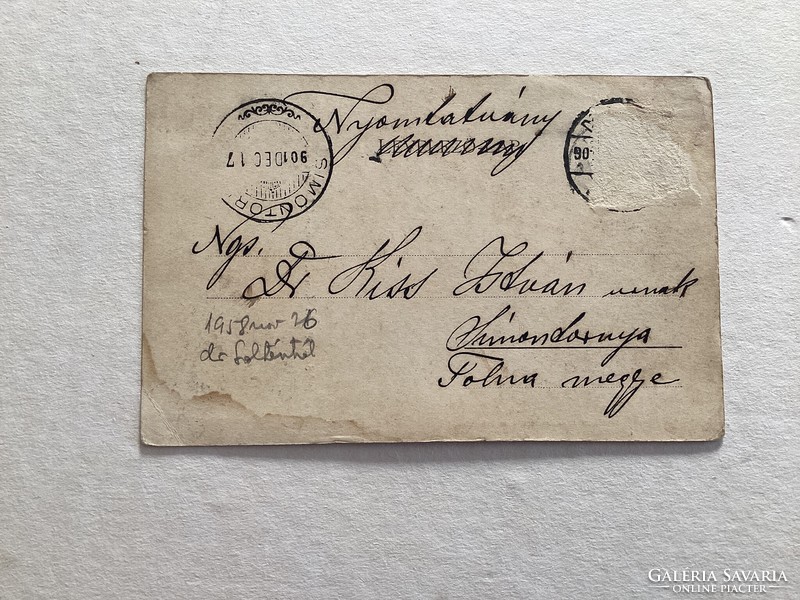 Nyomtatvány
SIMONTOR
901 DEC 17
90
Ngs.
Dr Kiss István urnak
Simontornya
Tolna megye
1958 nov 26
dr
GALÉRIA SAVARIA
ONLINE PIACTÉR